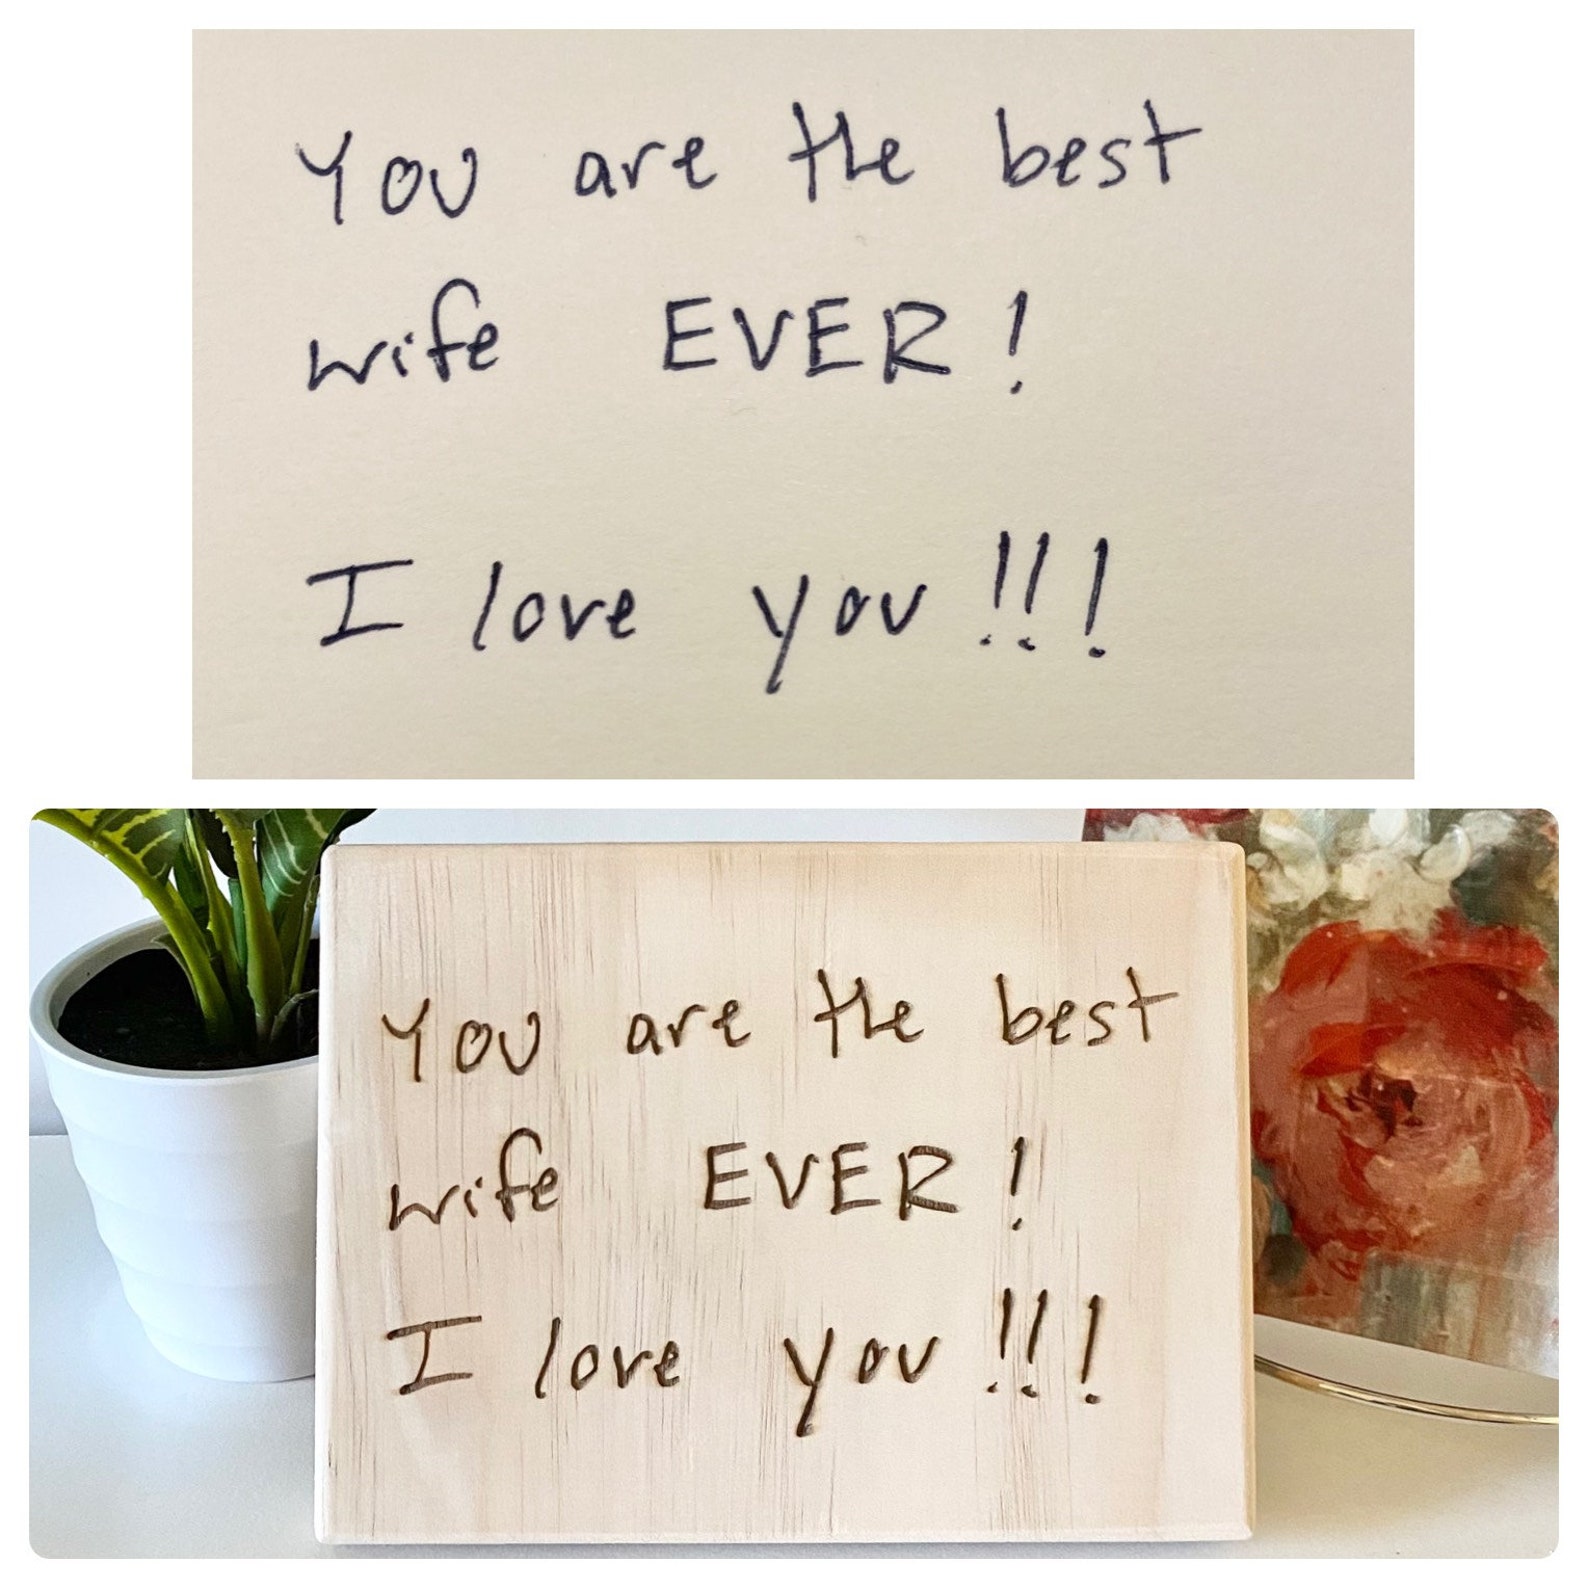 You are the best
wife EVER!
I love you!!!
You are the best
wife EVER!
I love you!!!